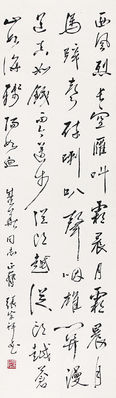 西風烈長空雁叫霜晨月霜晨月
馬蹄聲碎喇叭聲咽雄關漫
道真如鐵而今邁步從頭越從頭越蒼
山如海殘陽如血
同志正 張宗祥